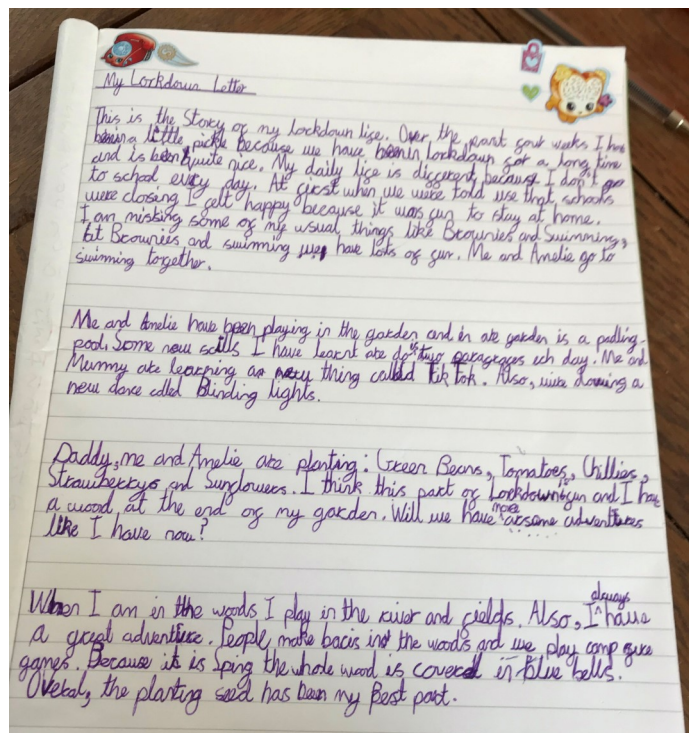 My Lockdown Letter
This is the Story of my lockdown life. Over the past four weeks I have
been a little pickle because we have been in lockdown for a long time
and is been quite nice. My daily life is different because I don't go
to school every day. At first when we were told use that schools
were closing I felt happy because it was fun to stay at home.
I am missing some of my usual things like Brownies and Swimming,
at Brownies and swimming we have lots of fun. Me and Amelie go to
swimming torgether.
Me and Amelie have been playing in the garden and in are garden is a padling
pool. Some new scills I have learnt are do two paragrages ech day. Me and
Mummy are learning an new thing called Tik Tok. Also, were dowing a
new dance called Blinding lights.
Daddy, me and Amelie are planting: Green Beans, Tomatoes, Chillies,
Strawberrys and Sunflowers. I think this part of Lockdown is fun and I have
a wood at the end of my garden. Will we have more arsome adventures
like I have now?
When I am in the woods I play in the river and fields. Also, I always have
a great adventure. People make bacis in the woods and we play camp fire
games. Because it is Sping the whole wood is covered in blue bells.
Overal, the planting seed has been my Best part.